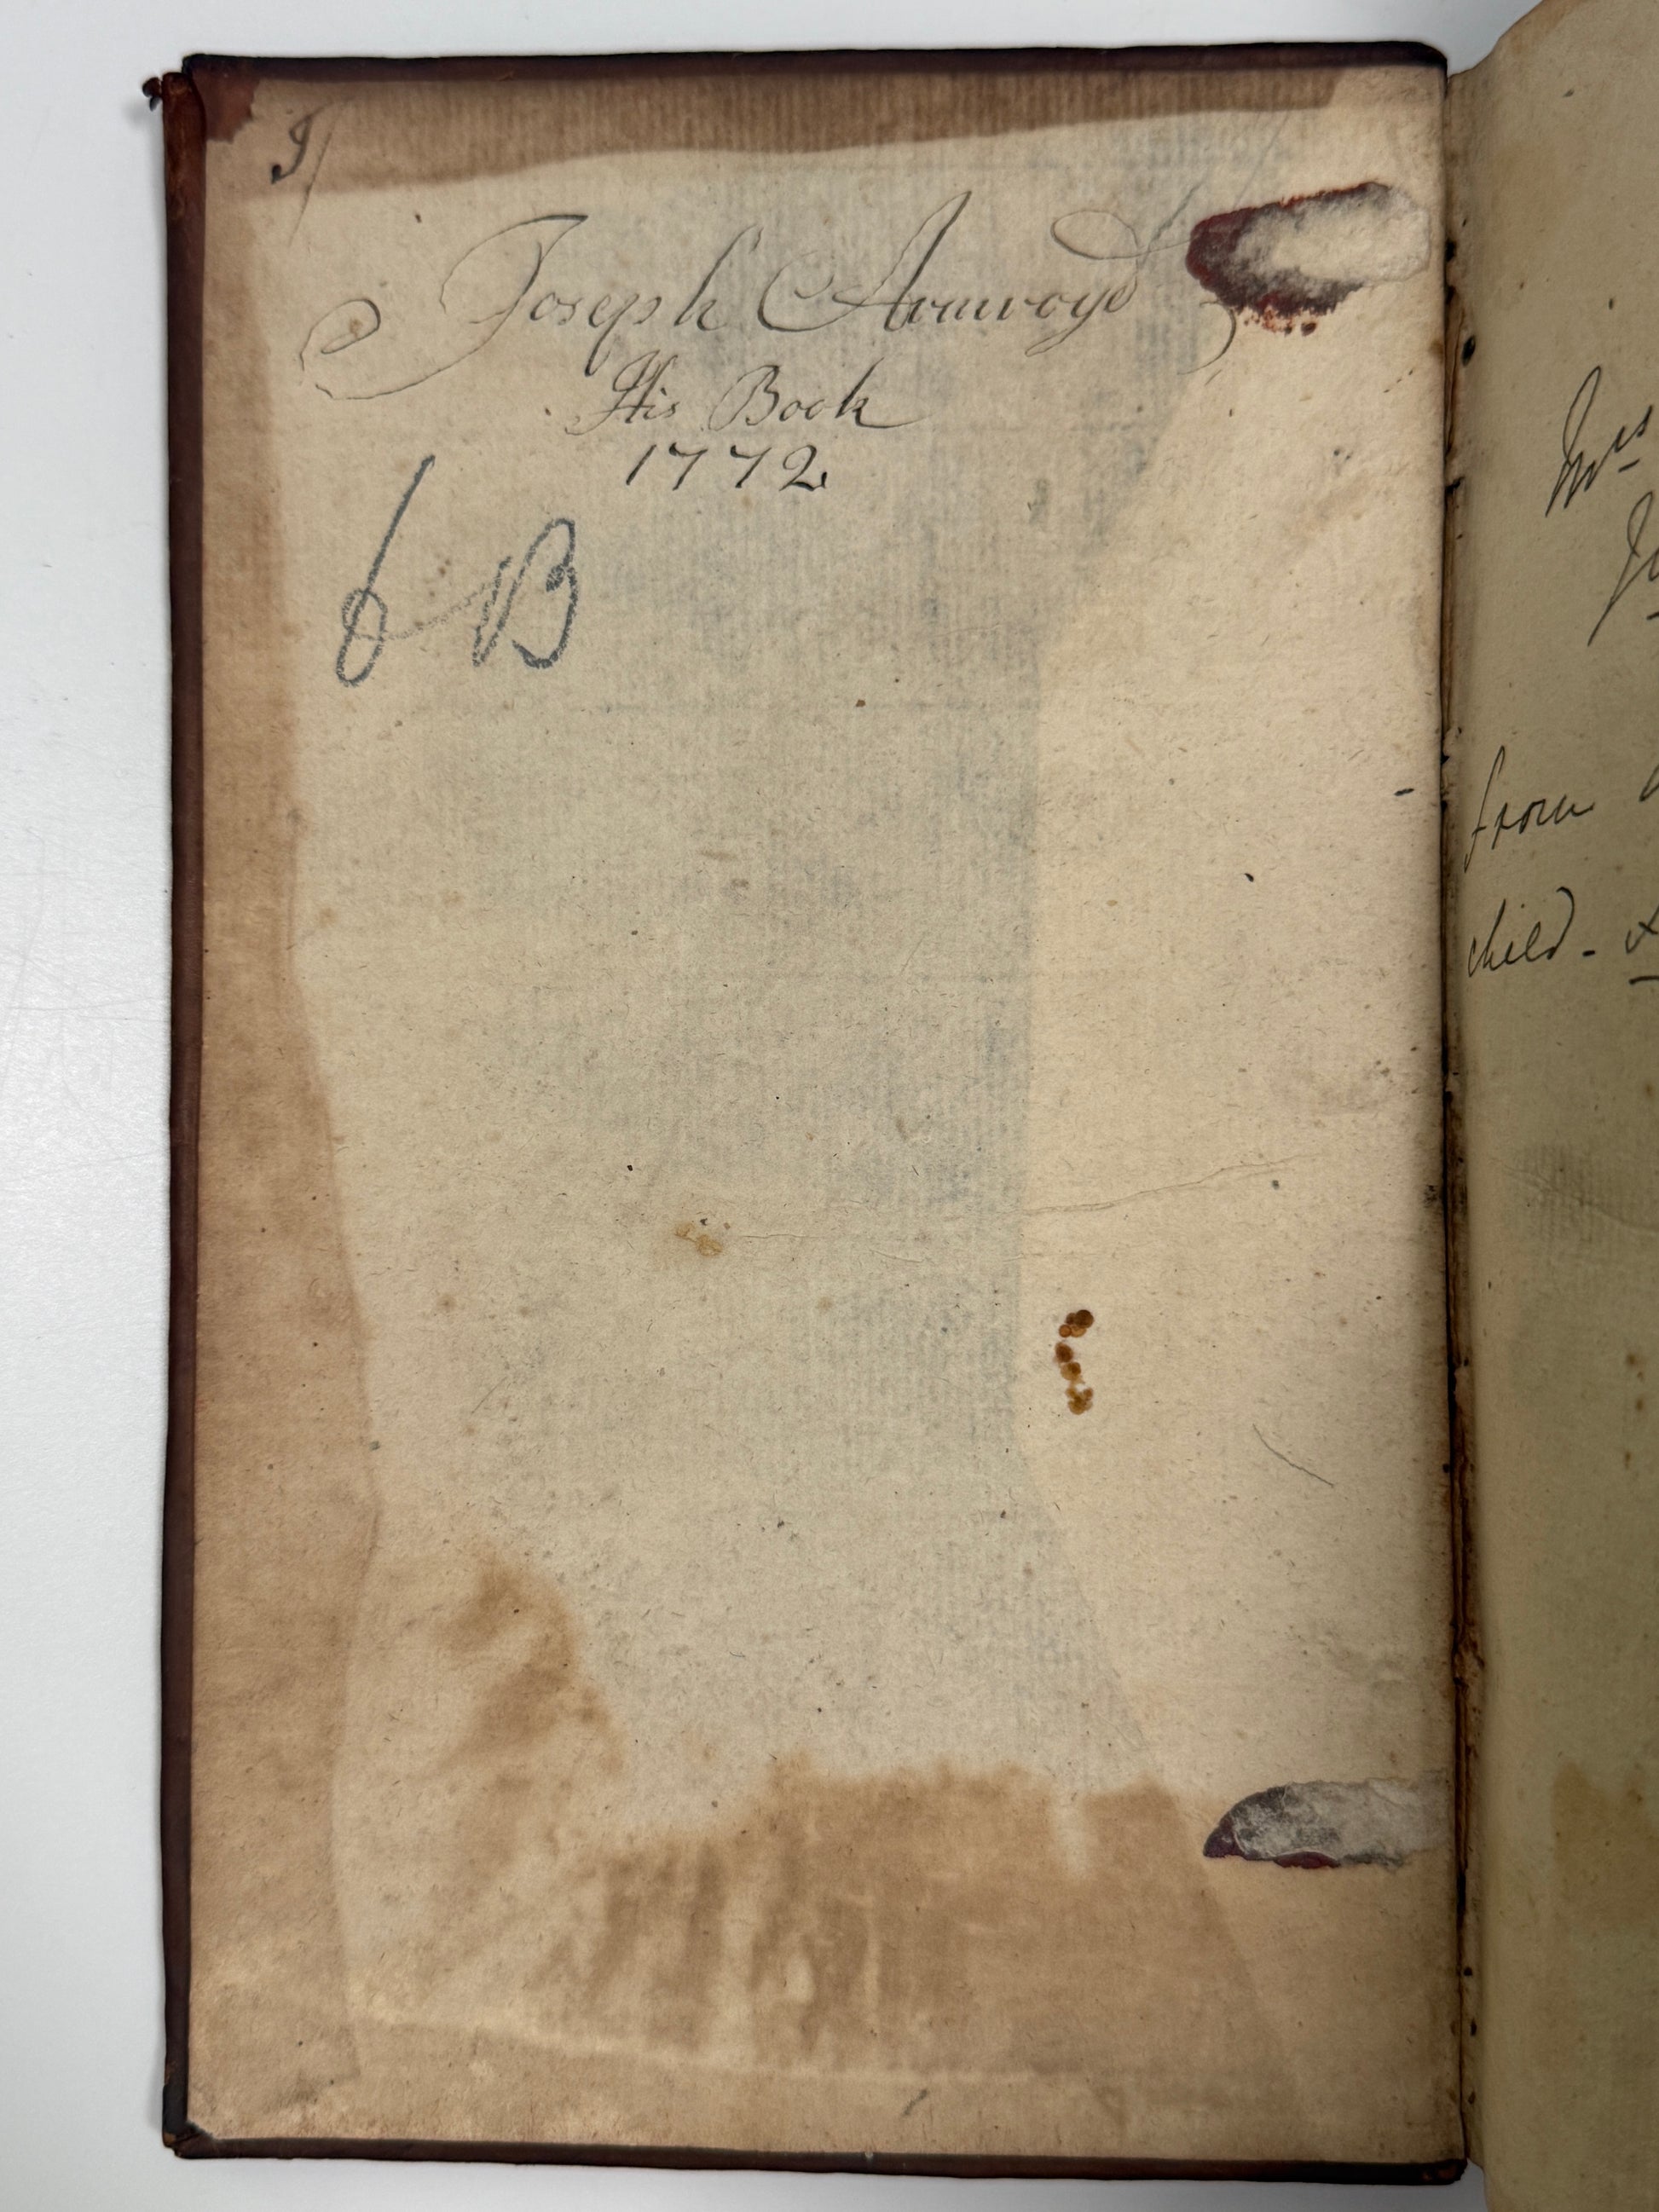 J
Joseph Armroyd
His Book
1772.
6 B
Mrs
from
child - &